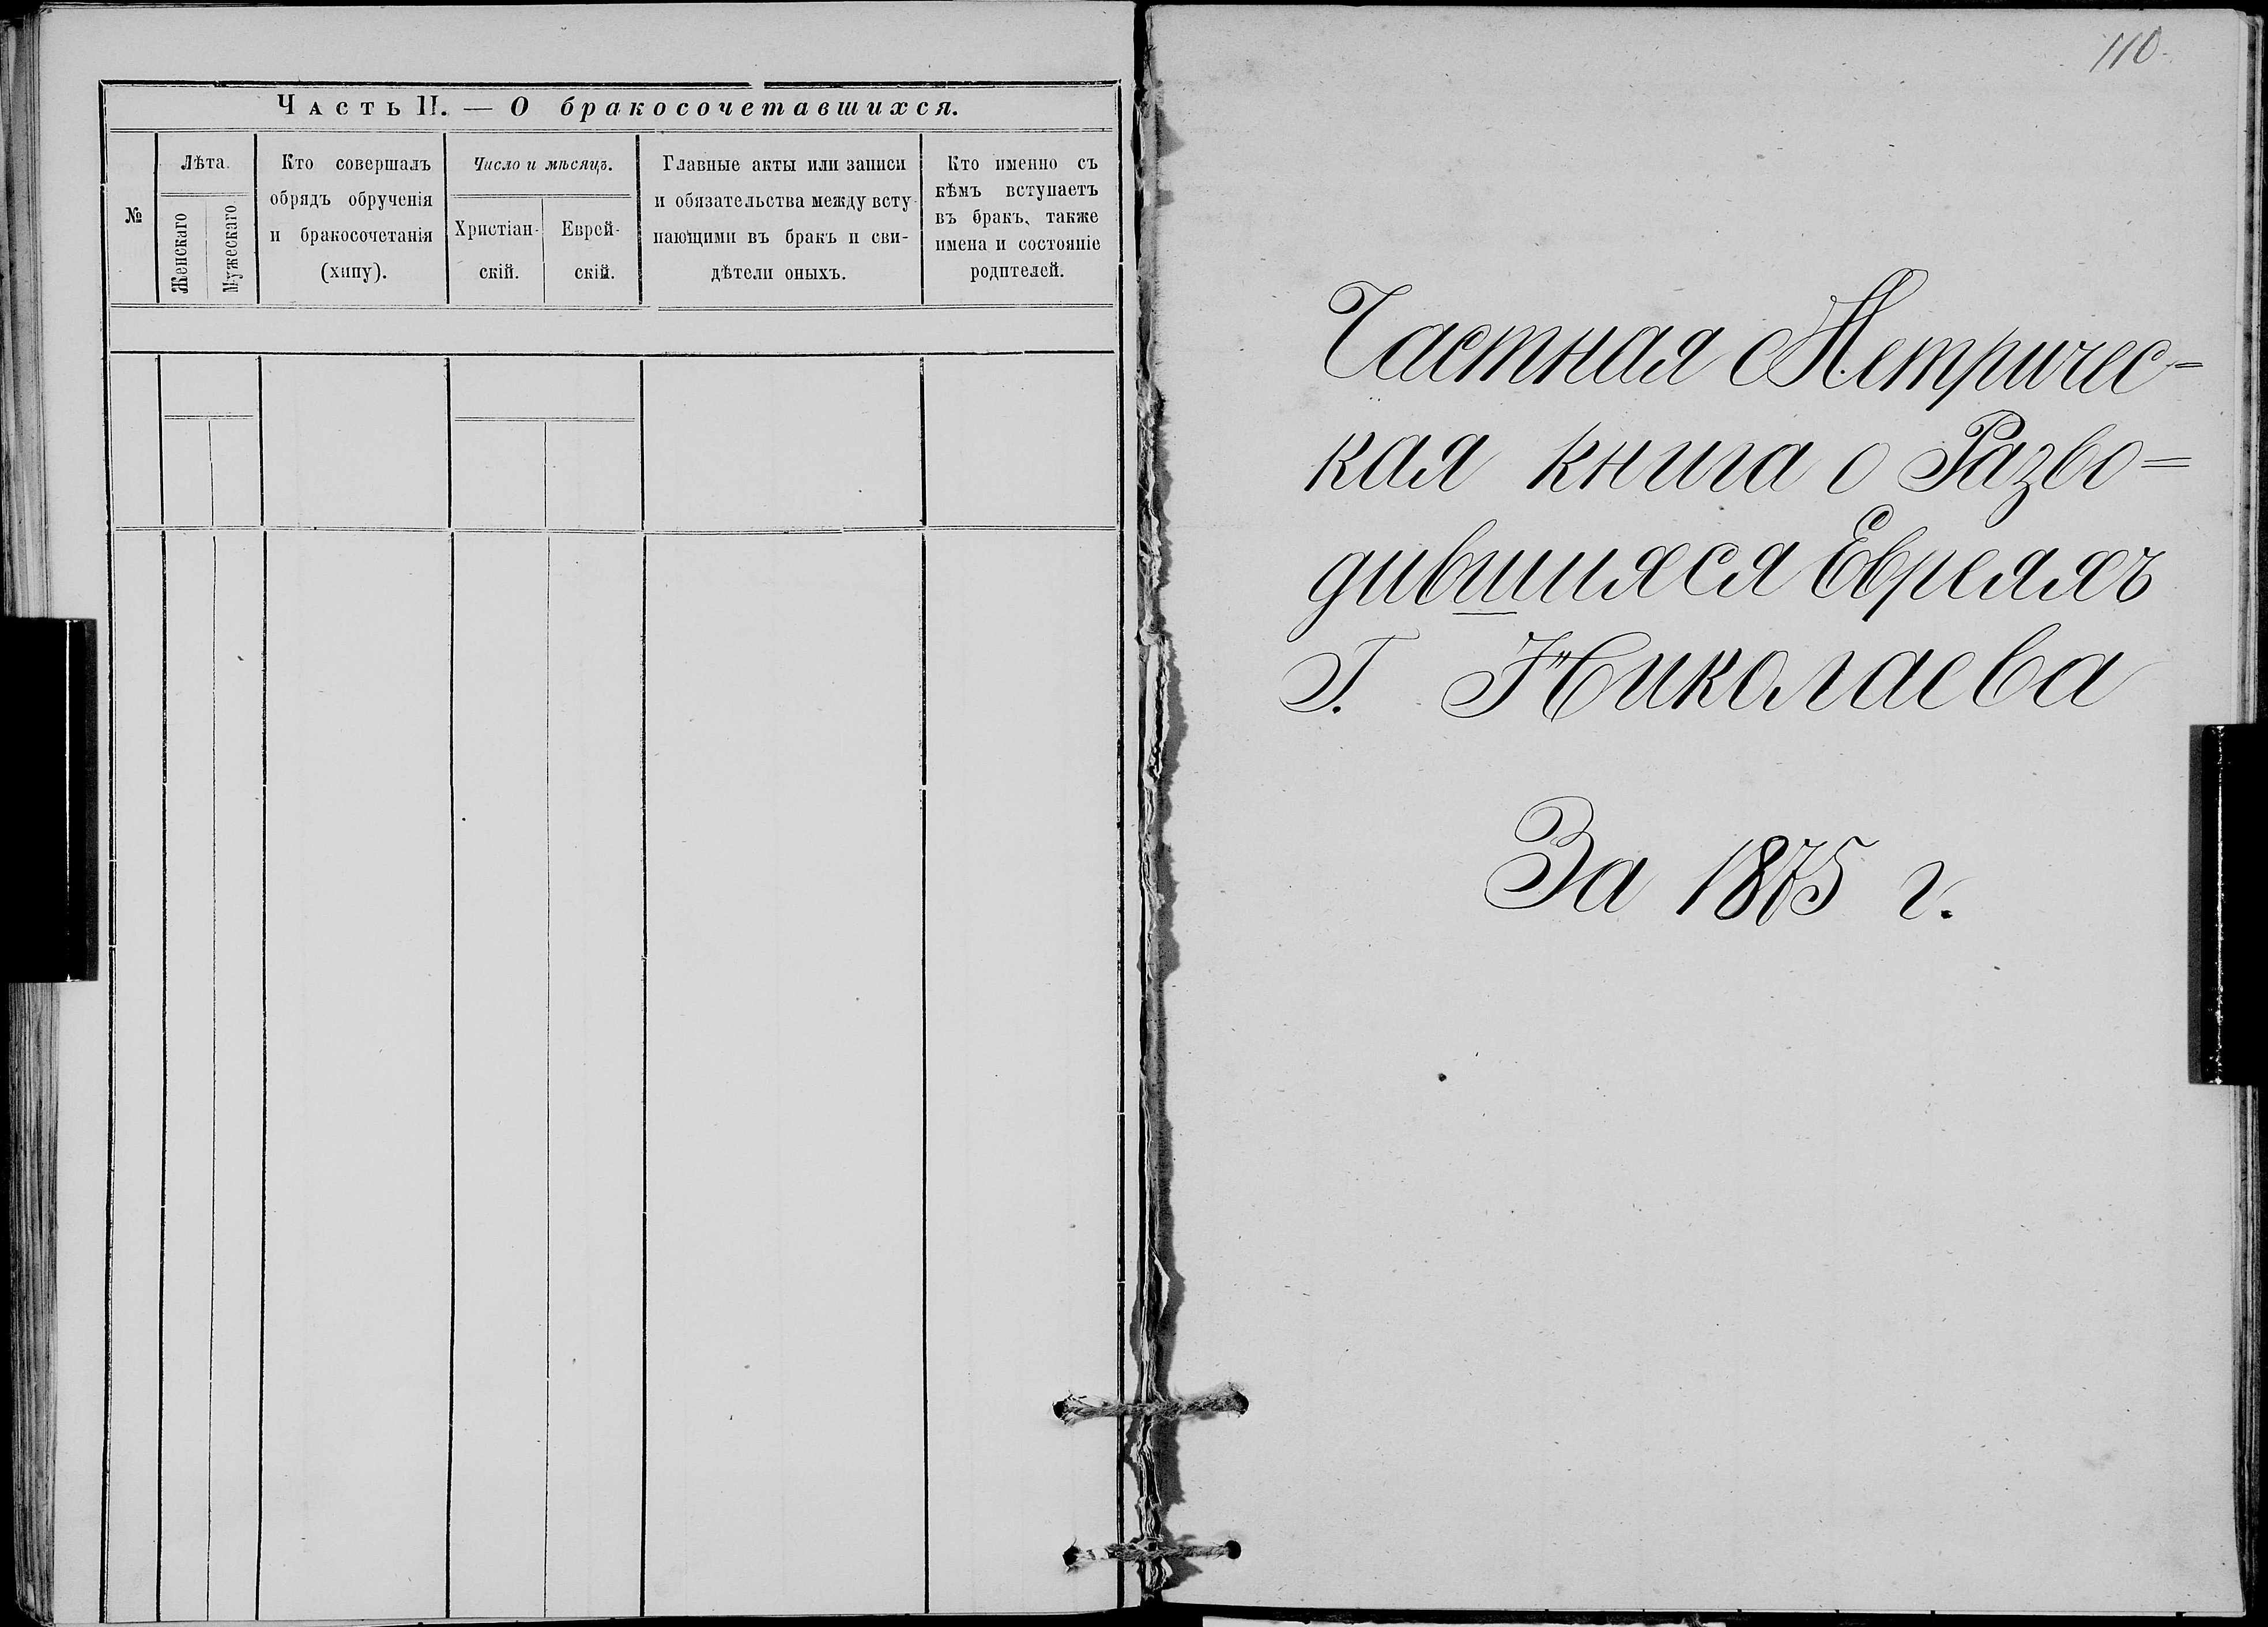 Часть II. — О бракосочетавшихся.
№
Лѣта.
Женскаго
Мужескаго
Кто совершалъ
обрядъ обрученія
и бракосочетанія
(хипу).
Число и мѣсяцъ.
Христіан-
скій.
Еврей-
скій.
Главные акты или записи
и обязательства между всту-
пающими въ бракъ и сви-
дѣтели оныхъ.
Кто именно съ
кѣмъ вступаетъ
въ бракъ, также
имена и состояніе
родителей.
110
Частная Метричес-
кая книга о Разво=
дившихся Евреяхъ
Г. Николаева
За 1875 г.